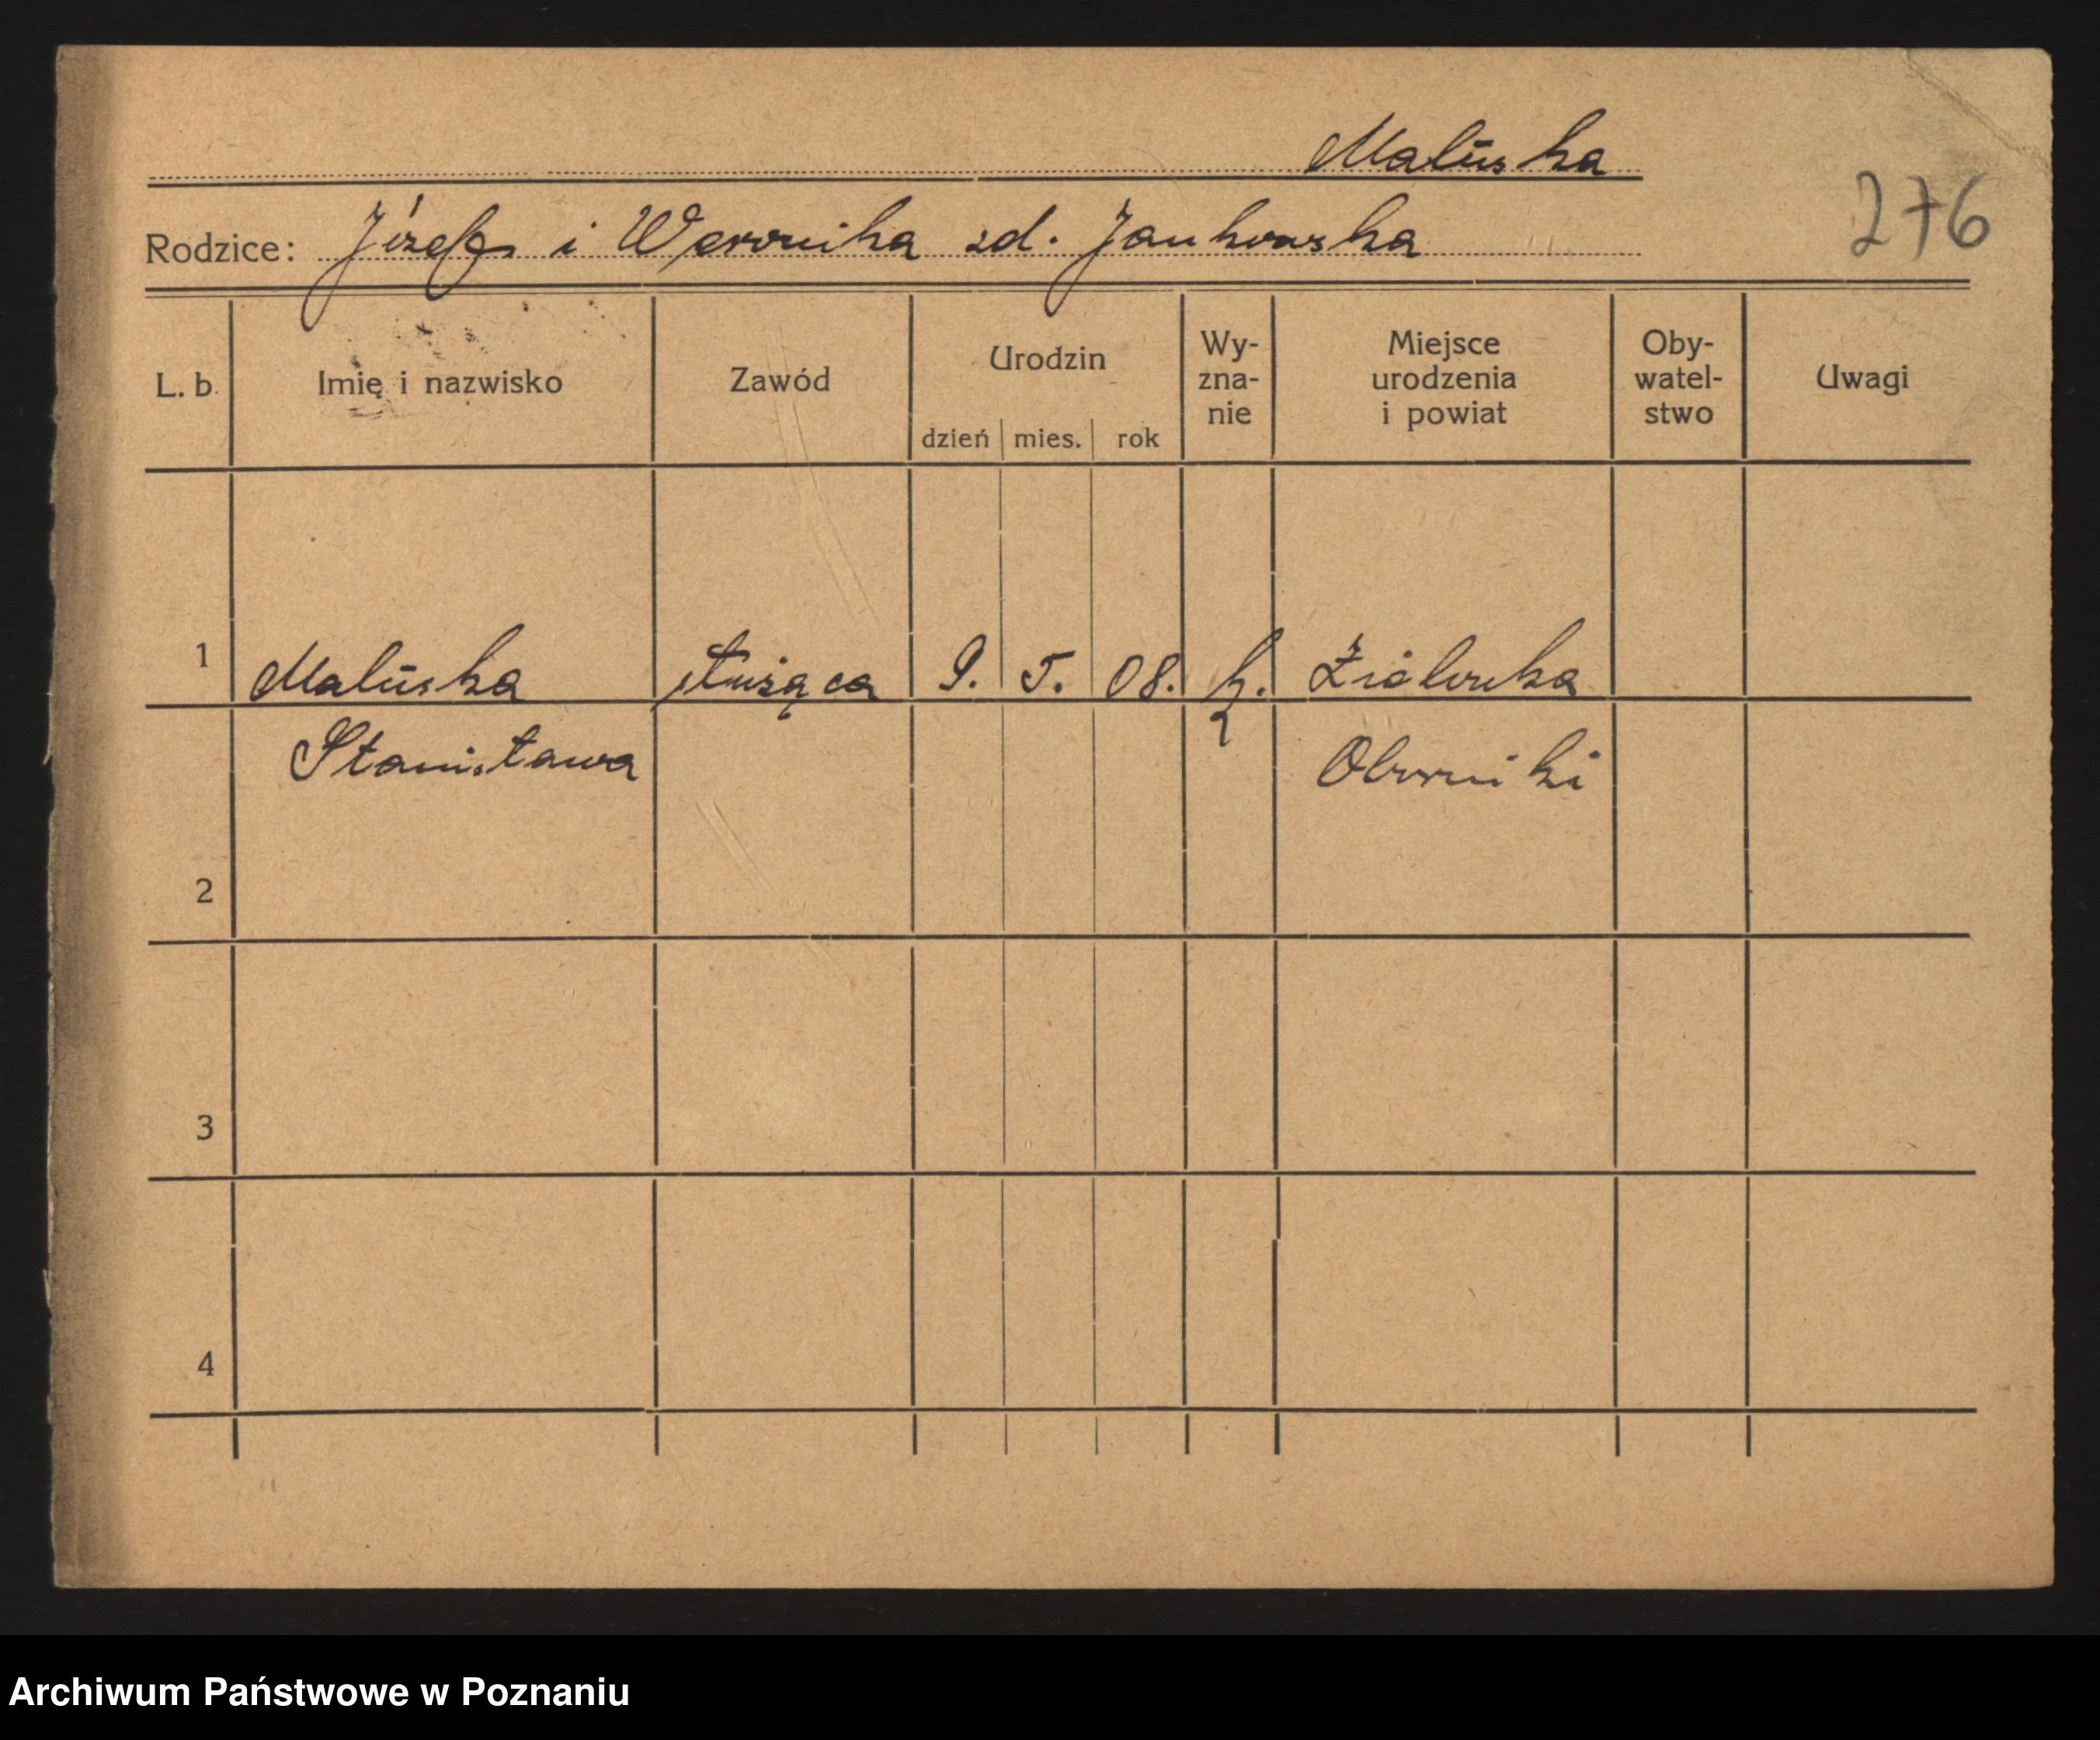 Maluśka
Rodzice: Józef i Weronika zd. Jankowska
276
L. b. Imię i nazwisko Zawód Urodzin dzień mies. rok Wy-zna-nie Miejsce urodzenia i powiat Oby-watel-stwo Uwagi
1 Maluśka służąca 9. 5. 08. k.
Stanisława Oborniki
2
3
4
Archiwum Państwowe w Poznaniu